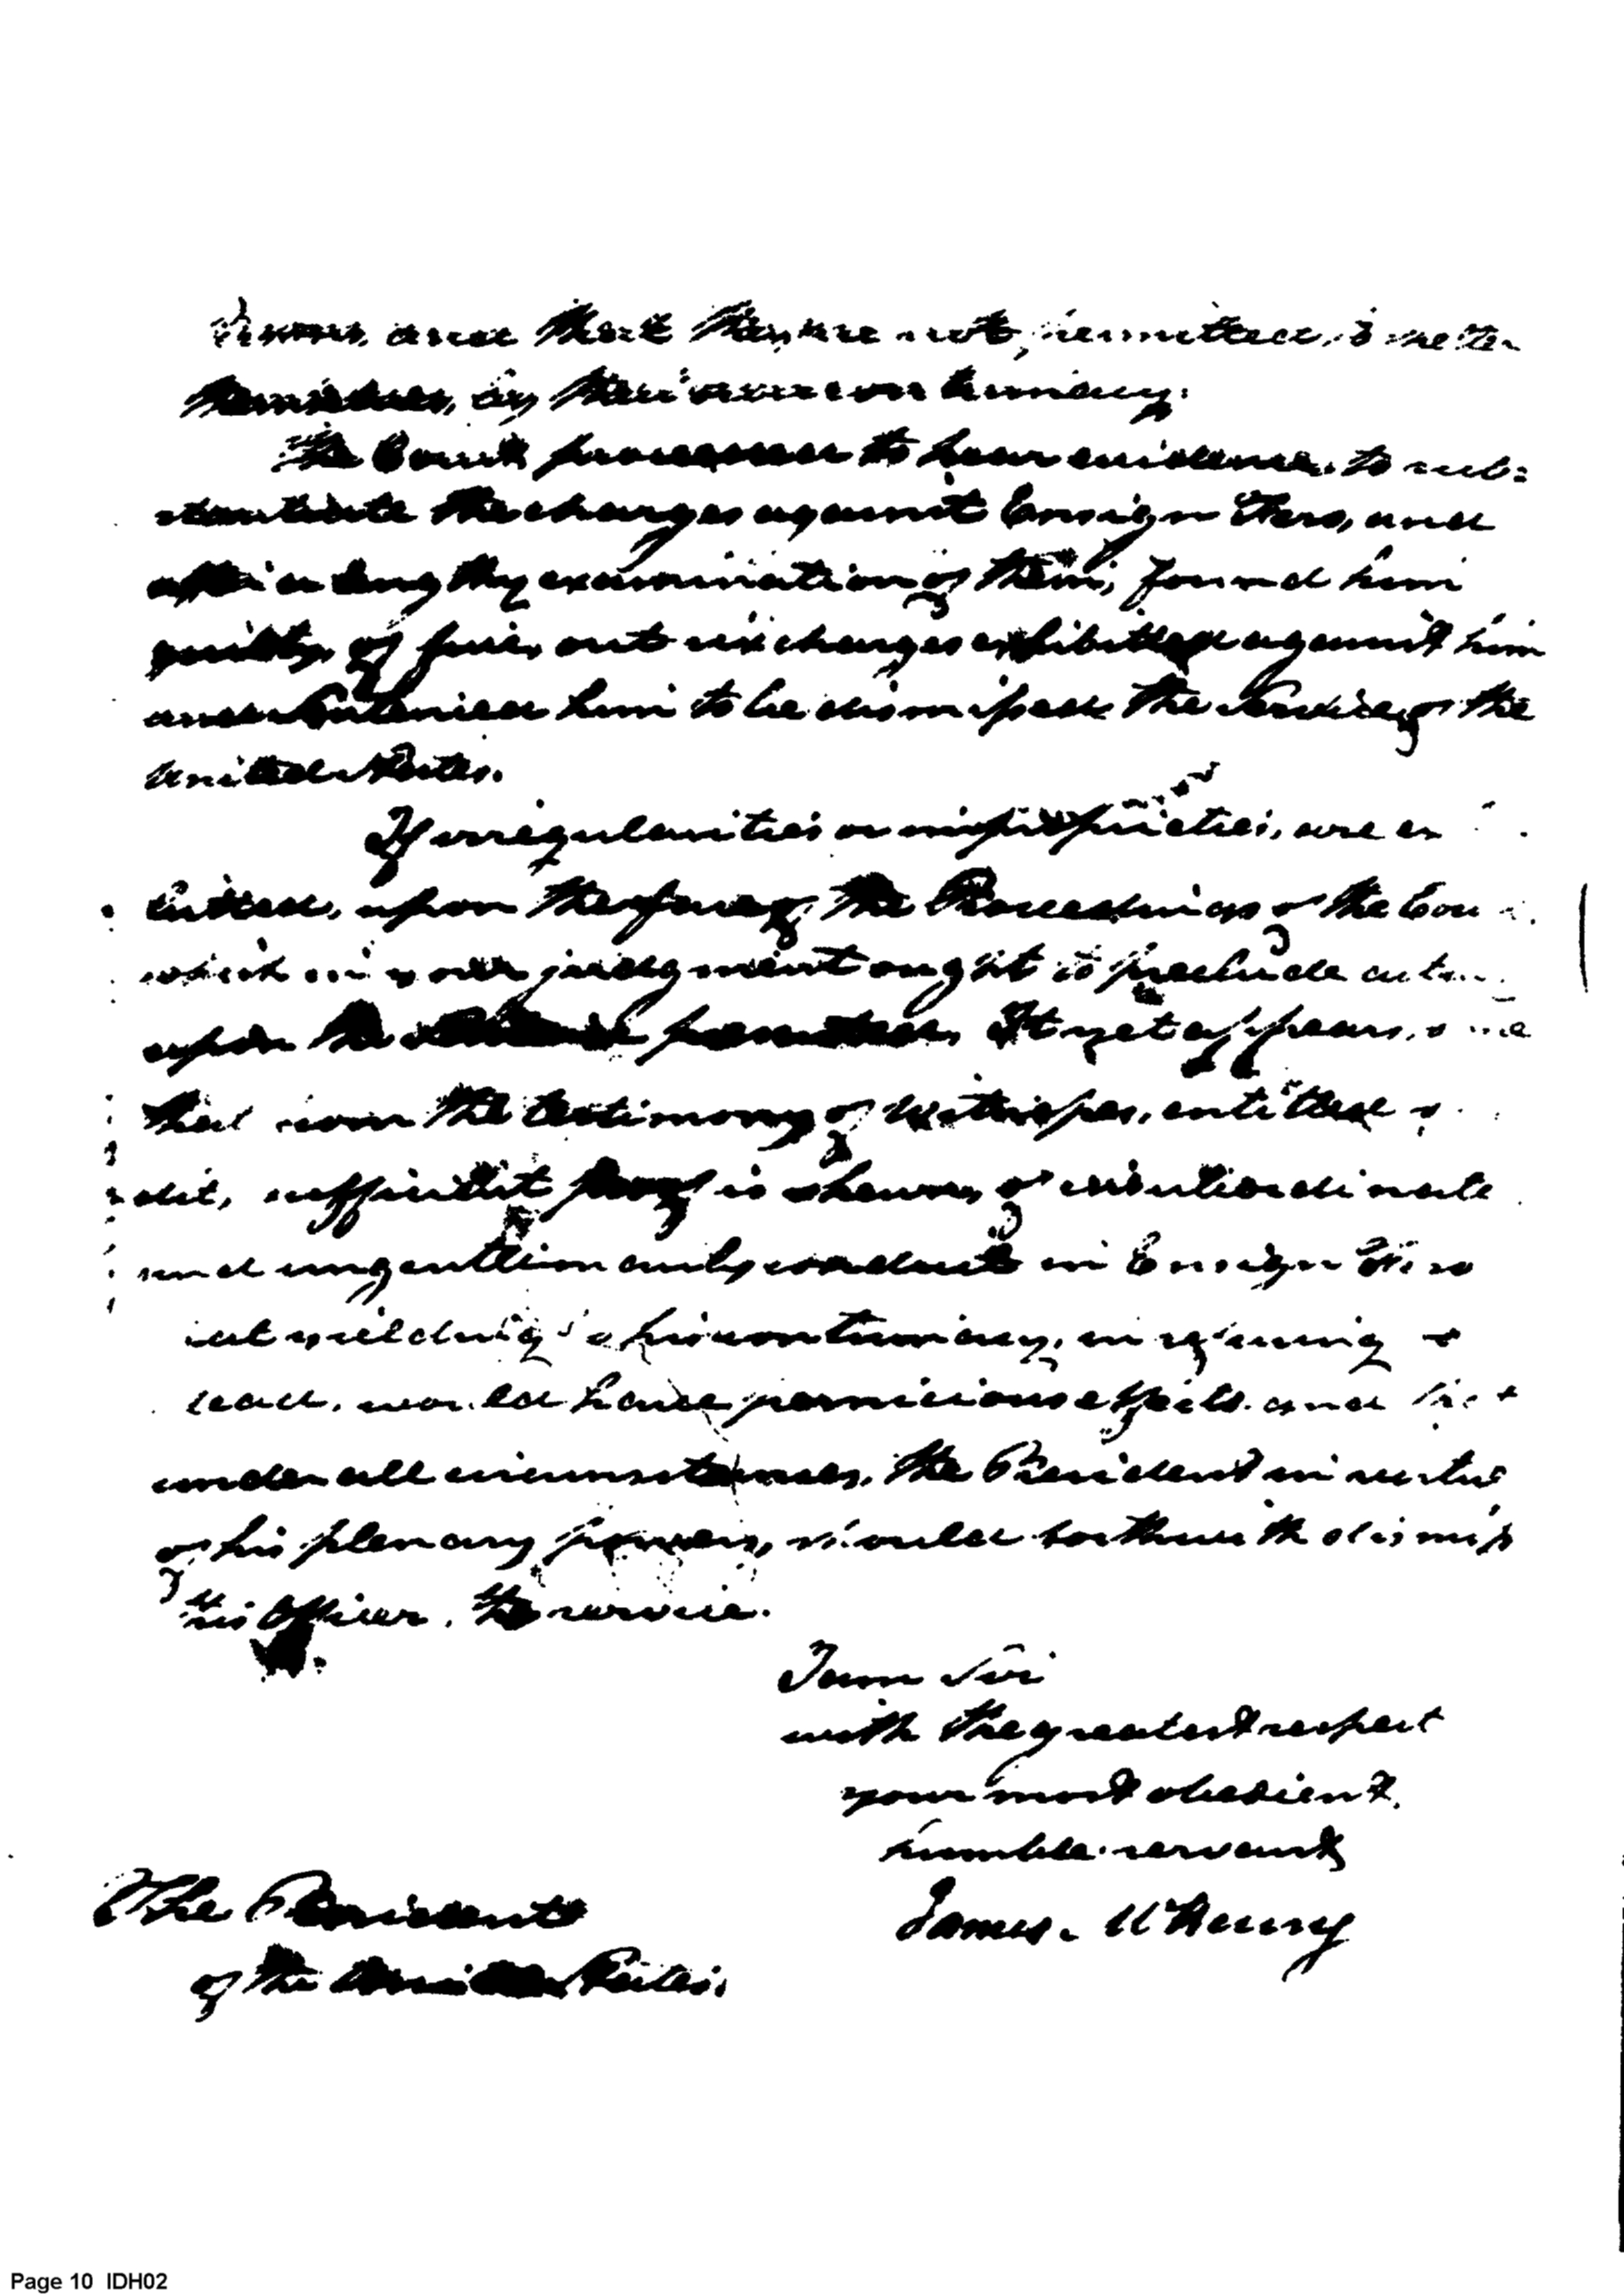 and that they are not permitted, to shelter
themselves, by their own contumacy.
The Court proceeded to hear evidence, to sub=
stantiate the charges against Ensign and
after a lengthy examination of them, found him
guilty, of five, out six charges exhibited against him
and sentenced him to be dismissed the Service of the
United States.
If irregularities or improprieties, are ex
hibited, upon the face of the Proceedings of the Cou
which in your judgment ought to preclude
upon the It yet appears, to me
that from the testimony of Witnesses, entitled
dit, sufficient proof is shewn, of
and ungentlemanly conduct in Ensign
yielding to his contumacy, in refusing to
lead, would have pernicious effects. and that
under all circumstances, the President in virtue
of his plenary powers, should forthwith dismiss
this Officer, the service.
I am Sir
with the greatest respect
your most obedient.
humble servant
James McHenry
The President
of the United States.
Page 10 IDH02